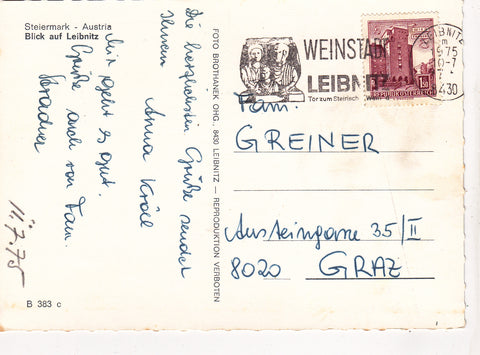 Steiermark - Austria
Blick auf Leibnitz
Die herzlichsten Grüße sendet
Ihnen
Anna Kröll
Mir geht es gut.
Grüße auch von Fam.
11.7.75
B 383 c
FOTO BROTHANEK OHG., 8430 LEIBNITZ — REPRODUKTION VERBOTEN
WEINSTADT
LEIBNITZ
Tor zum Steirisch
REPUBLIK ÖSTERREICH
LEIBNITZ
8430
Fam.
GREINER
Austeingasse 35/II
8020 GRAZ